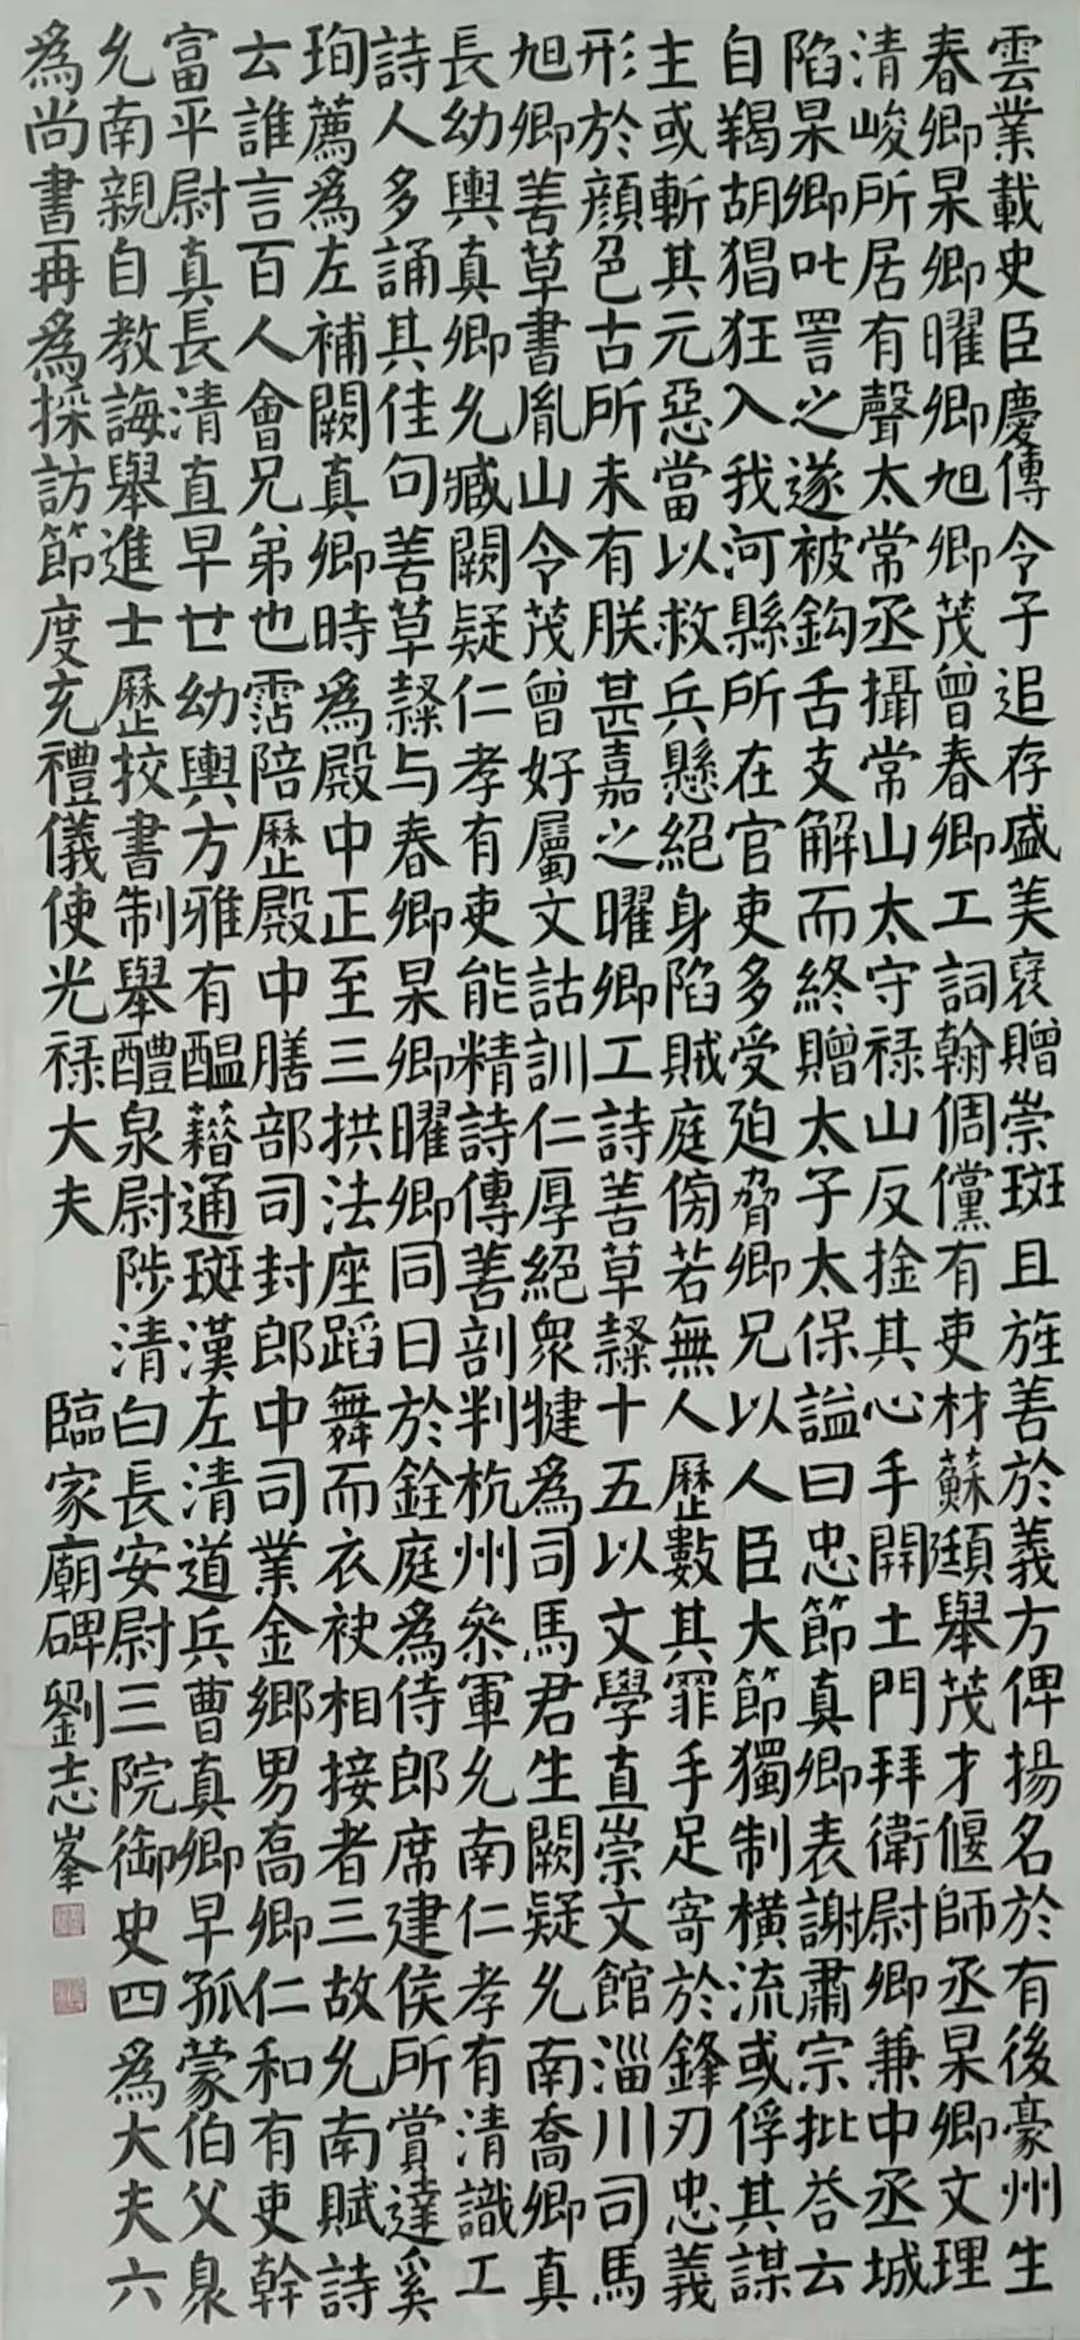 雲業載史臣慶傳令子追存盛美褎贈崇斑且旌善於義方俾揚名於有後豪州生
春卿杲卿曜卿旭卿茂曾春卿工詞翰倜儻有吏材蘇頲舉茂才偃師丞杲卿文理
清峻所居有聲太常丞攝常山太守禄山反捦其心手開土門拜衛尉卿兼中丞城
陷杲卿叱詈之遂被鈎舌支解而終贈太子太保謚曰忠節真卿表謝肅宗批荅云
自羯胡猖狂入我河縣所在官吏多受迫脅卿兄以人臣大節獨制横流或俘其謀
主或斬其元惡當以救兵懸絕身陷賊庭傍若無人歷數其罪手足寄於鋒刃忠義
形於顏色古所未有朕甚嘉之曜卿工詩善草隸十五以文學直崇文館淄川司馬
旭卿善草書胤山令茂曾好屬文詁訓仁厚絕衆犍為司馬君生闕疑允南喬卿真
長幼輿真卿允臧闕疑仁孝有吏能精詩傳善剖判杭州叅軍允南仁孝有清識工
詩人多誦其佳句善草隸与春卿杲卿曜卿同日於銓庭為侍郎席建侯所賞達奚
珣薦為左補闕真卿時為殿中正至三拱法座蹈舞而衣袂相接者三故允南賦詩
云誰言百人會兄弟也霑陪歷殿中膳部司封郎中司業金鄉男喬卿仁和有吏幹
富平尉真長清直早世幼輿方雅有醞藉通斑漢左清道兵曹真卿早孤蒙伯父臮
允南親自教誨舉進士歷挍書制舉醴泉尉陟清白長安尉三院御史四為大夫六
為尚書再為採訪節度充禮儀使光禄大夫 臨家廟碑劉志峯